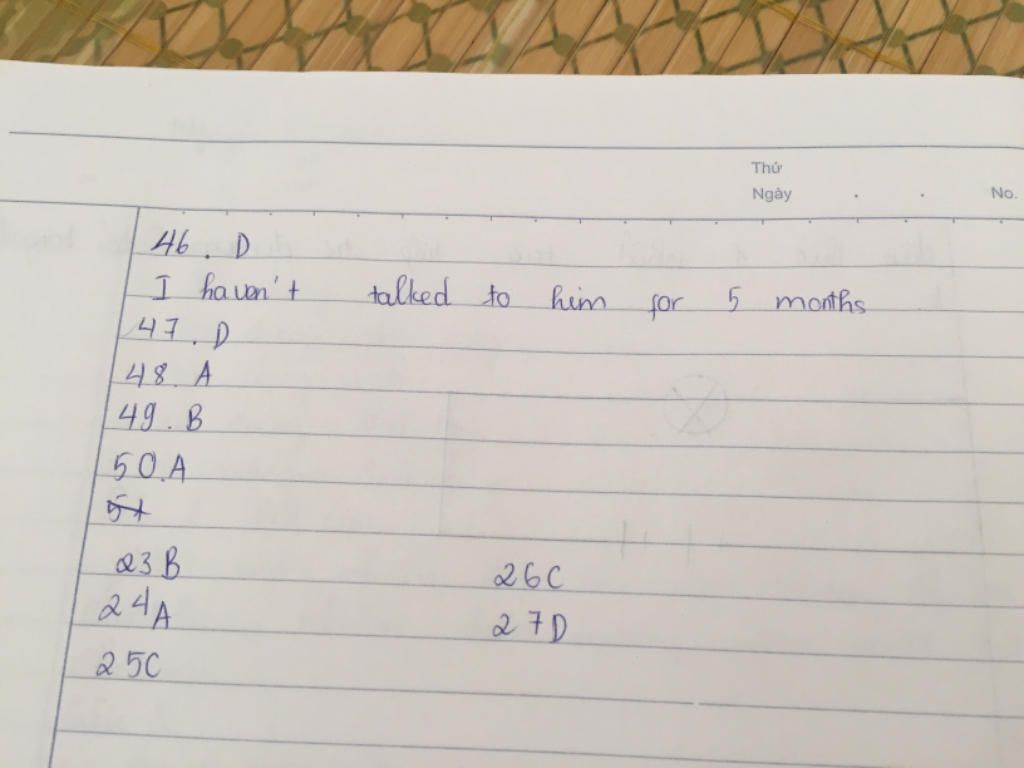 Thứ
Ngày . . No.
46. D
I haven't talked to him for 5 months
47. D
48. A
49. B
50. A
51
23B 26C
24A 27D
25C